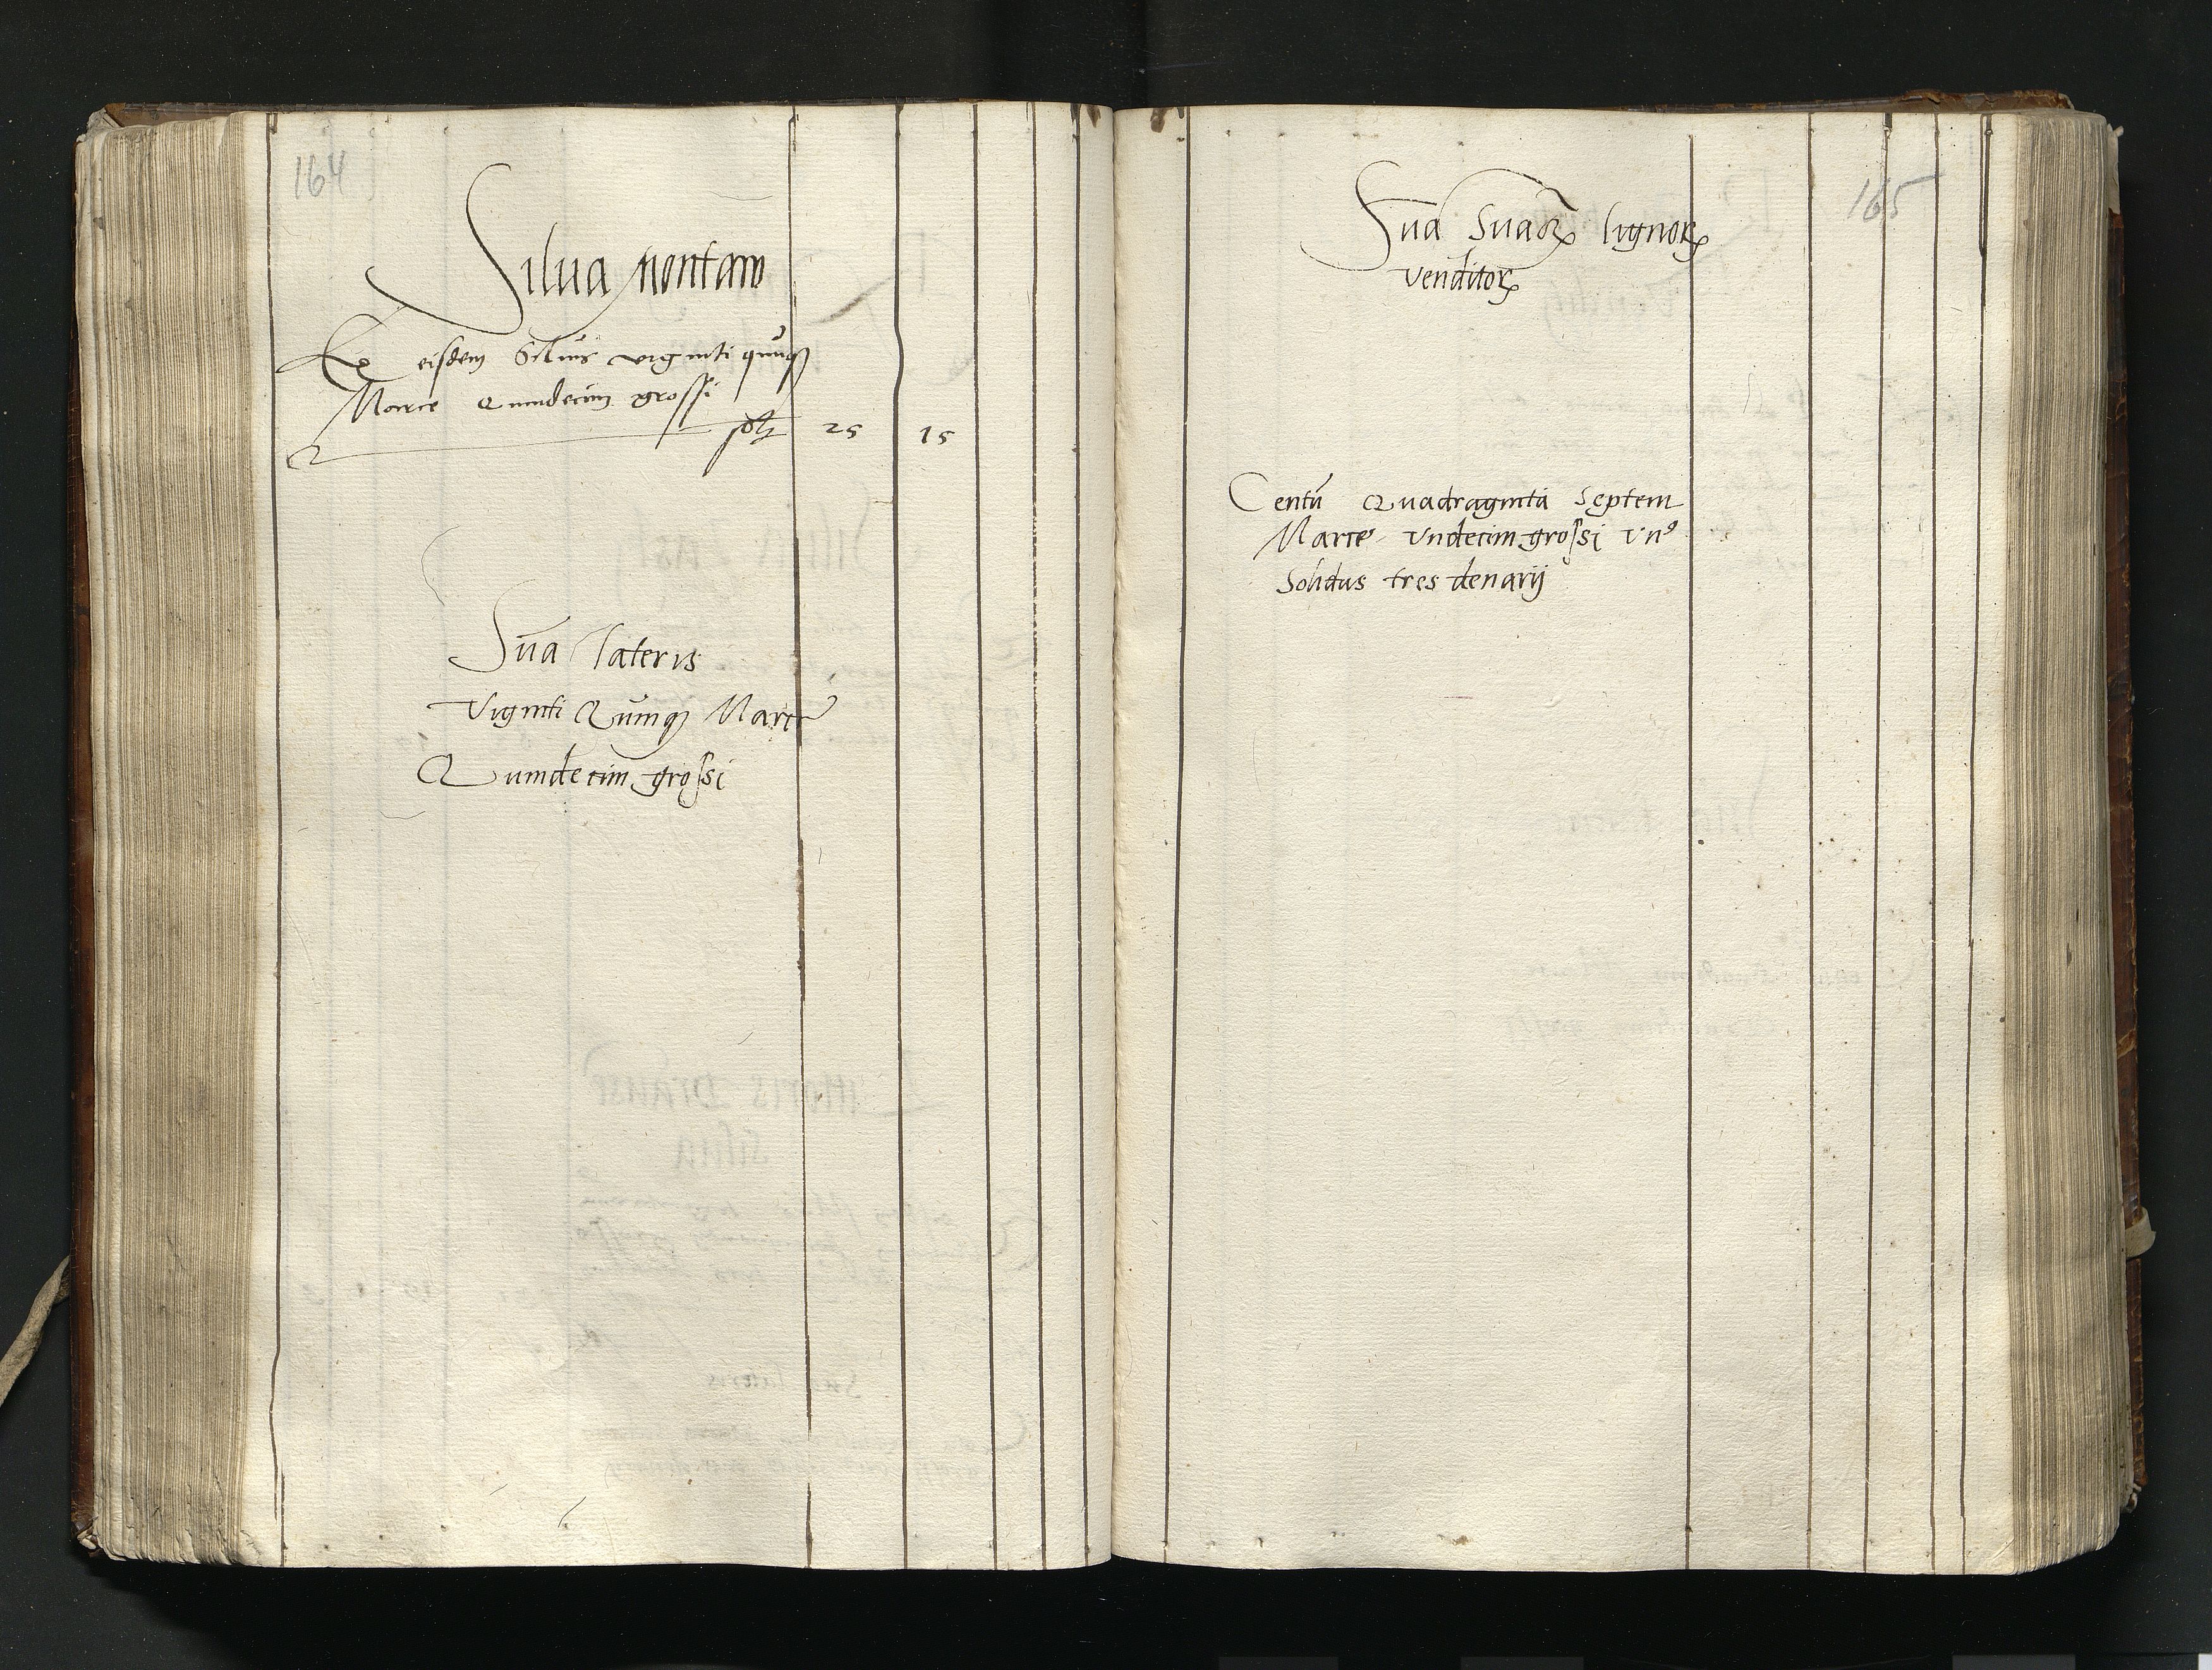 164
Silua montaw
Ex eisdem Siluis viginti quinqꝫ
Marce Quindecim grossi
25 15
Sūa lateris
Viginti Quinqꝫ Marce
Quindecim grossi
165
Sūa Suaꝝ lignoꝝ
venditoꝝ
Centū Quadraginta Septem
Marce Vndecim grossi vnꝰ
Solidus tres denarij